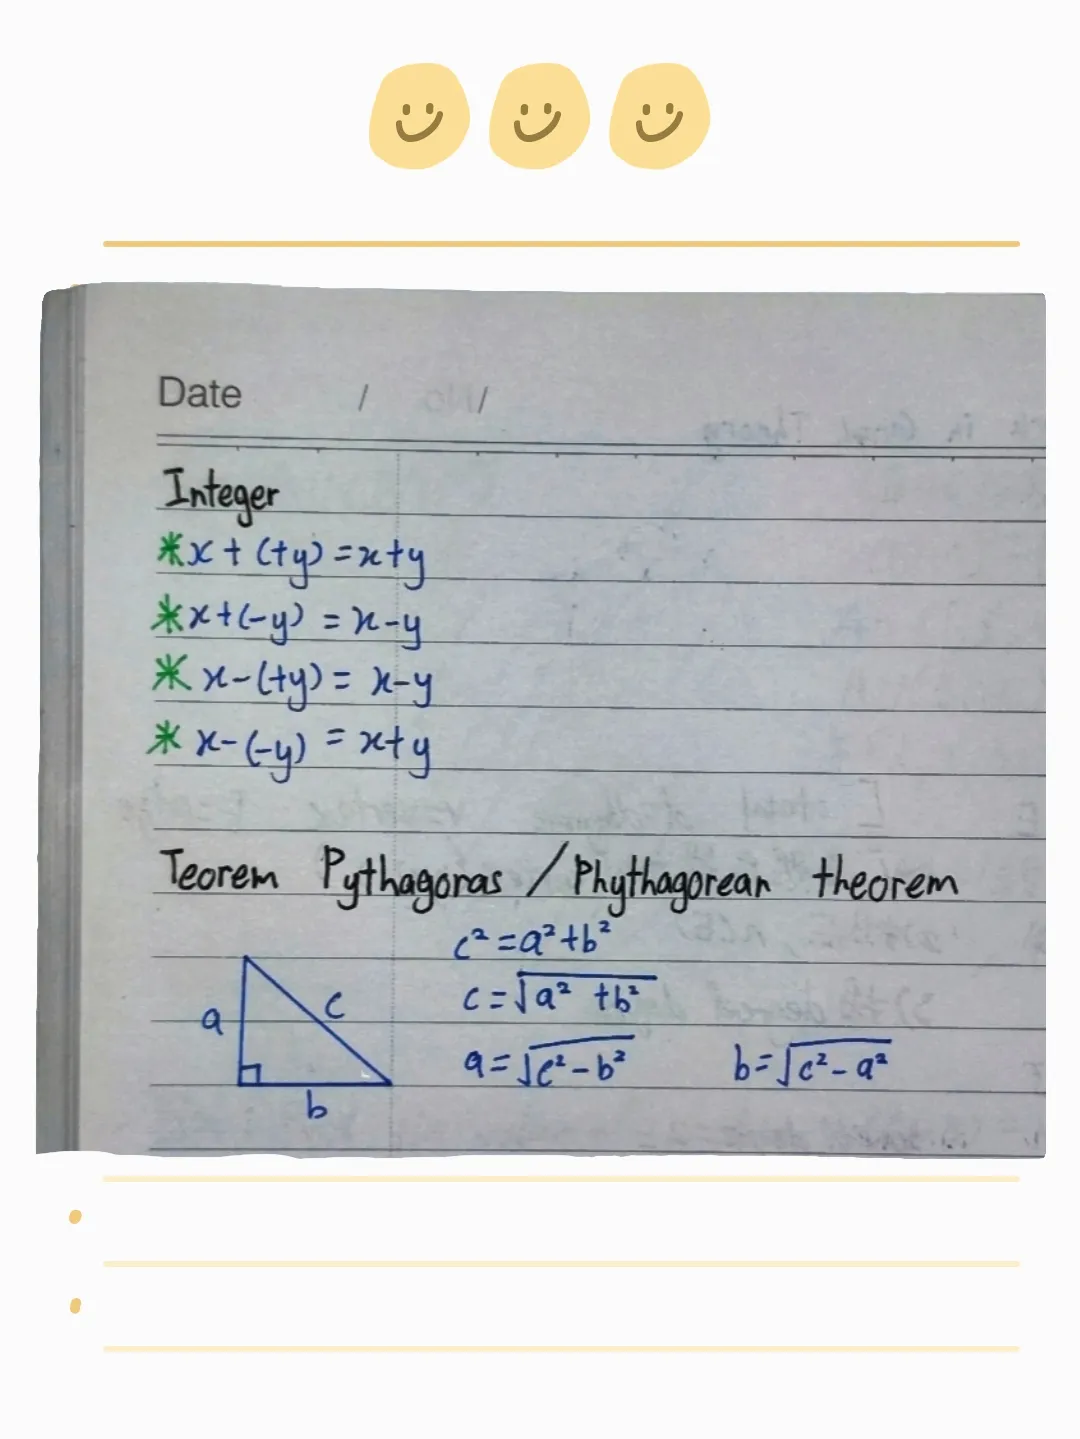 Date / /
Integer
* x + (+y) = x+y
* x+(-y) = x-y
* x-(+y) = x-y
* x-(-y) = x+y
Teorem Pythagoras / Phythagorean theorem
c² = a²+b²
a c c = √a² + b²
a = √c² - b² b = √c² - a²
b